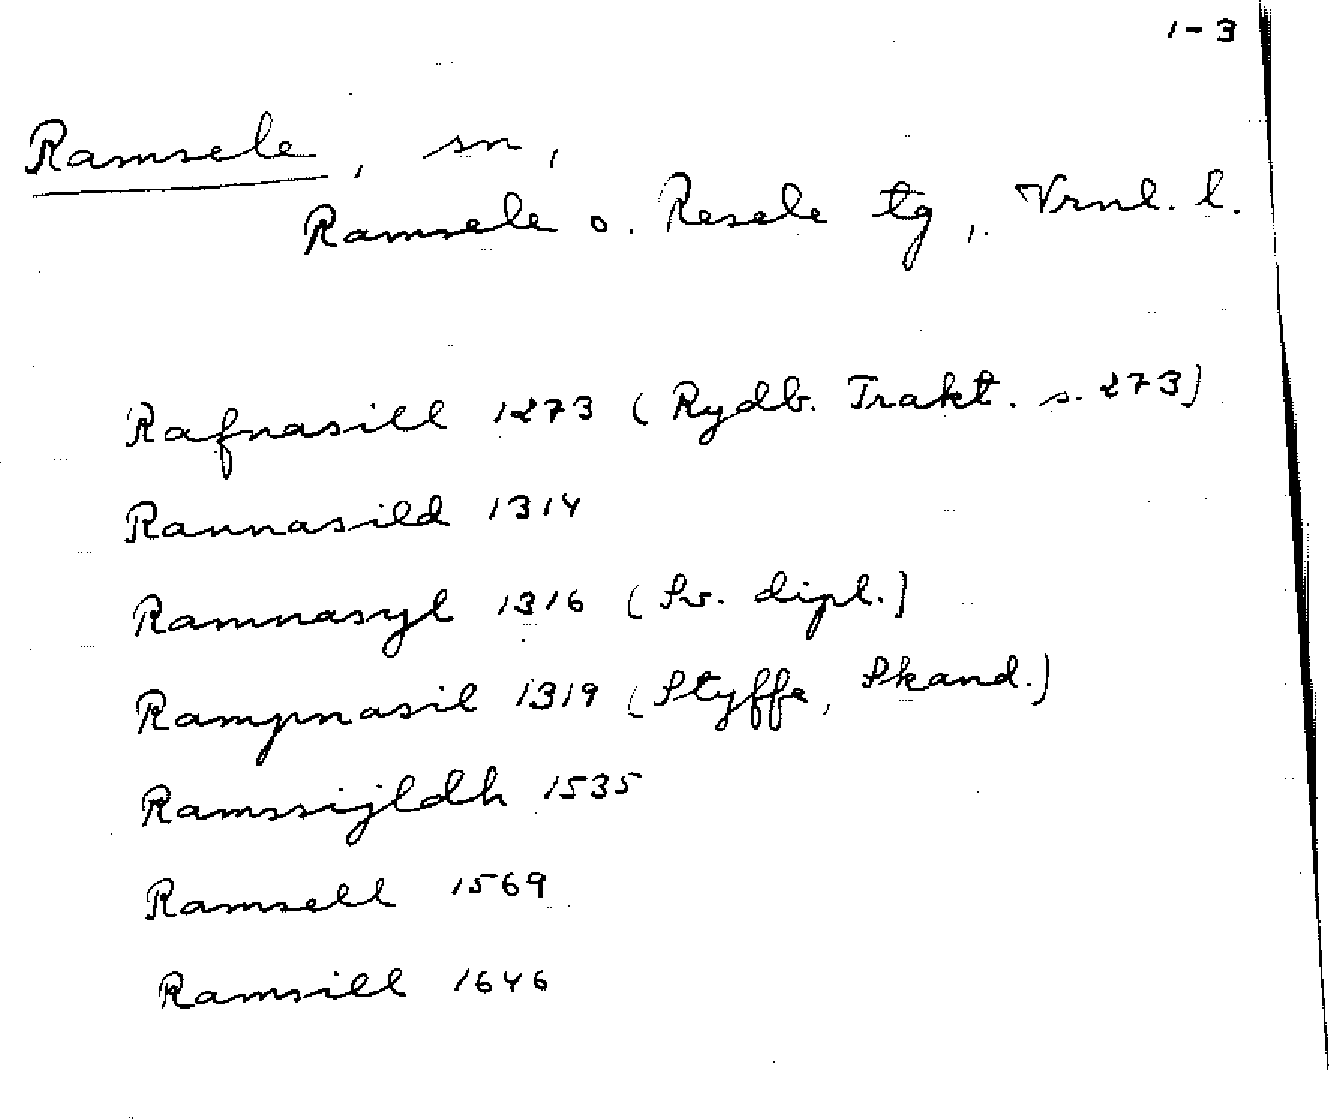 1-3
Ramsele, sn,
Ramsele o. Resele tg, Vrnl. l.
Rafnasill 1273 (Rydb. Trakt. s. 273)
Rannasild 1314
Ramnasyl 1316 (Sv. dipl.)
Rampnasil 1319 (Styffe, Skand.)
Ramssijldh 1535
Ramsell 1569
Ramsill 1646